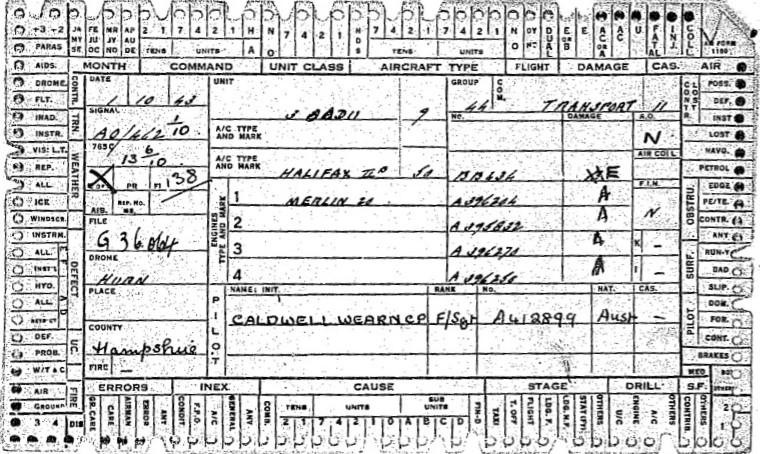 +3 +2 JA MY SE FE JU OC MR JY NO AP AU DE 2 1 7 4 2 1 H A N O 7 4 2 1 H D S 7 4 2 1 7 4 2 1 N O DY NT DUAL E OR B E AC OR A AC U FATAL INJ. COLL
PARAS TENS UNITS TENS UNITS A/M FORM 1180
AIDS. MONTH COMMAND UNIT CLASS AIRCRAFT TYPE FLIGHT DAMAGE CAS. AIR
DROME. CONTR. DATE UNIT GROUP COM. CONTR. LOST POSS.
FLT. 1 10 43 9 44 TRANSPORT 11 DEF.
INAD. TRN. SIGNAL NO. DAMAGE A.O. INST
INSTR. A0/412 1/10 A/C TYPE AND MARK N LOST
VIS: L.T. WEATHER 765C AIR COLL NAVG.
REP. 13 6/10 A/C TYPE AND MARK HALIFAX 50 BB434 E PETROL
ALL. X PR FI 138 F.I.N. OBSTRU. EDGE
ICE AIB. REP. NO. ENGINES TYPE AND MARK 1 MERLIN 20 A396204 A N PE/TE.
WINDSCR. FILE 2 A395832 A CONTR.
INSTRM. DEFECT G36064 3 A396270 A K - SURF. ANY
ALL. DROME 4 A396250 A I - RUN-Y
INST'S HURN BAD
HYD. PLACE PILOT NAME: INIT. RANK NO. NAT. CAS. PILOT SLIP.
ALL. CALDWELL WEARN CP F/Sgt A412899 Aust - DOM.
COUNTY FOR.
DEF. UC Hampshire CONT.
PROB. FIRE - BRAKES
W/T & C MED
AIR FIRE ERRORS INEX. CAUSE STAGE DRILL S.F. OTHERS
GROUND GR. CARE CARE AIRMAN ERROR ANY CONDIT. F.P.O. A/C GENERAL ANY COMB. TENS UNITS SUB UNITS PIN-D TAXI T. OFF FLIGHT LDG. F. LDG. N.F. STAT(FIT) OTHERS U/C ENGINE A/C OTHERS CONTRIB. OTHERS 2
3 4 DIS 2 1 7 4 2 1 A B C D 1